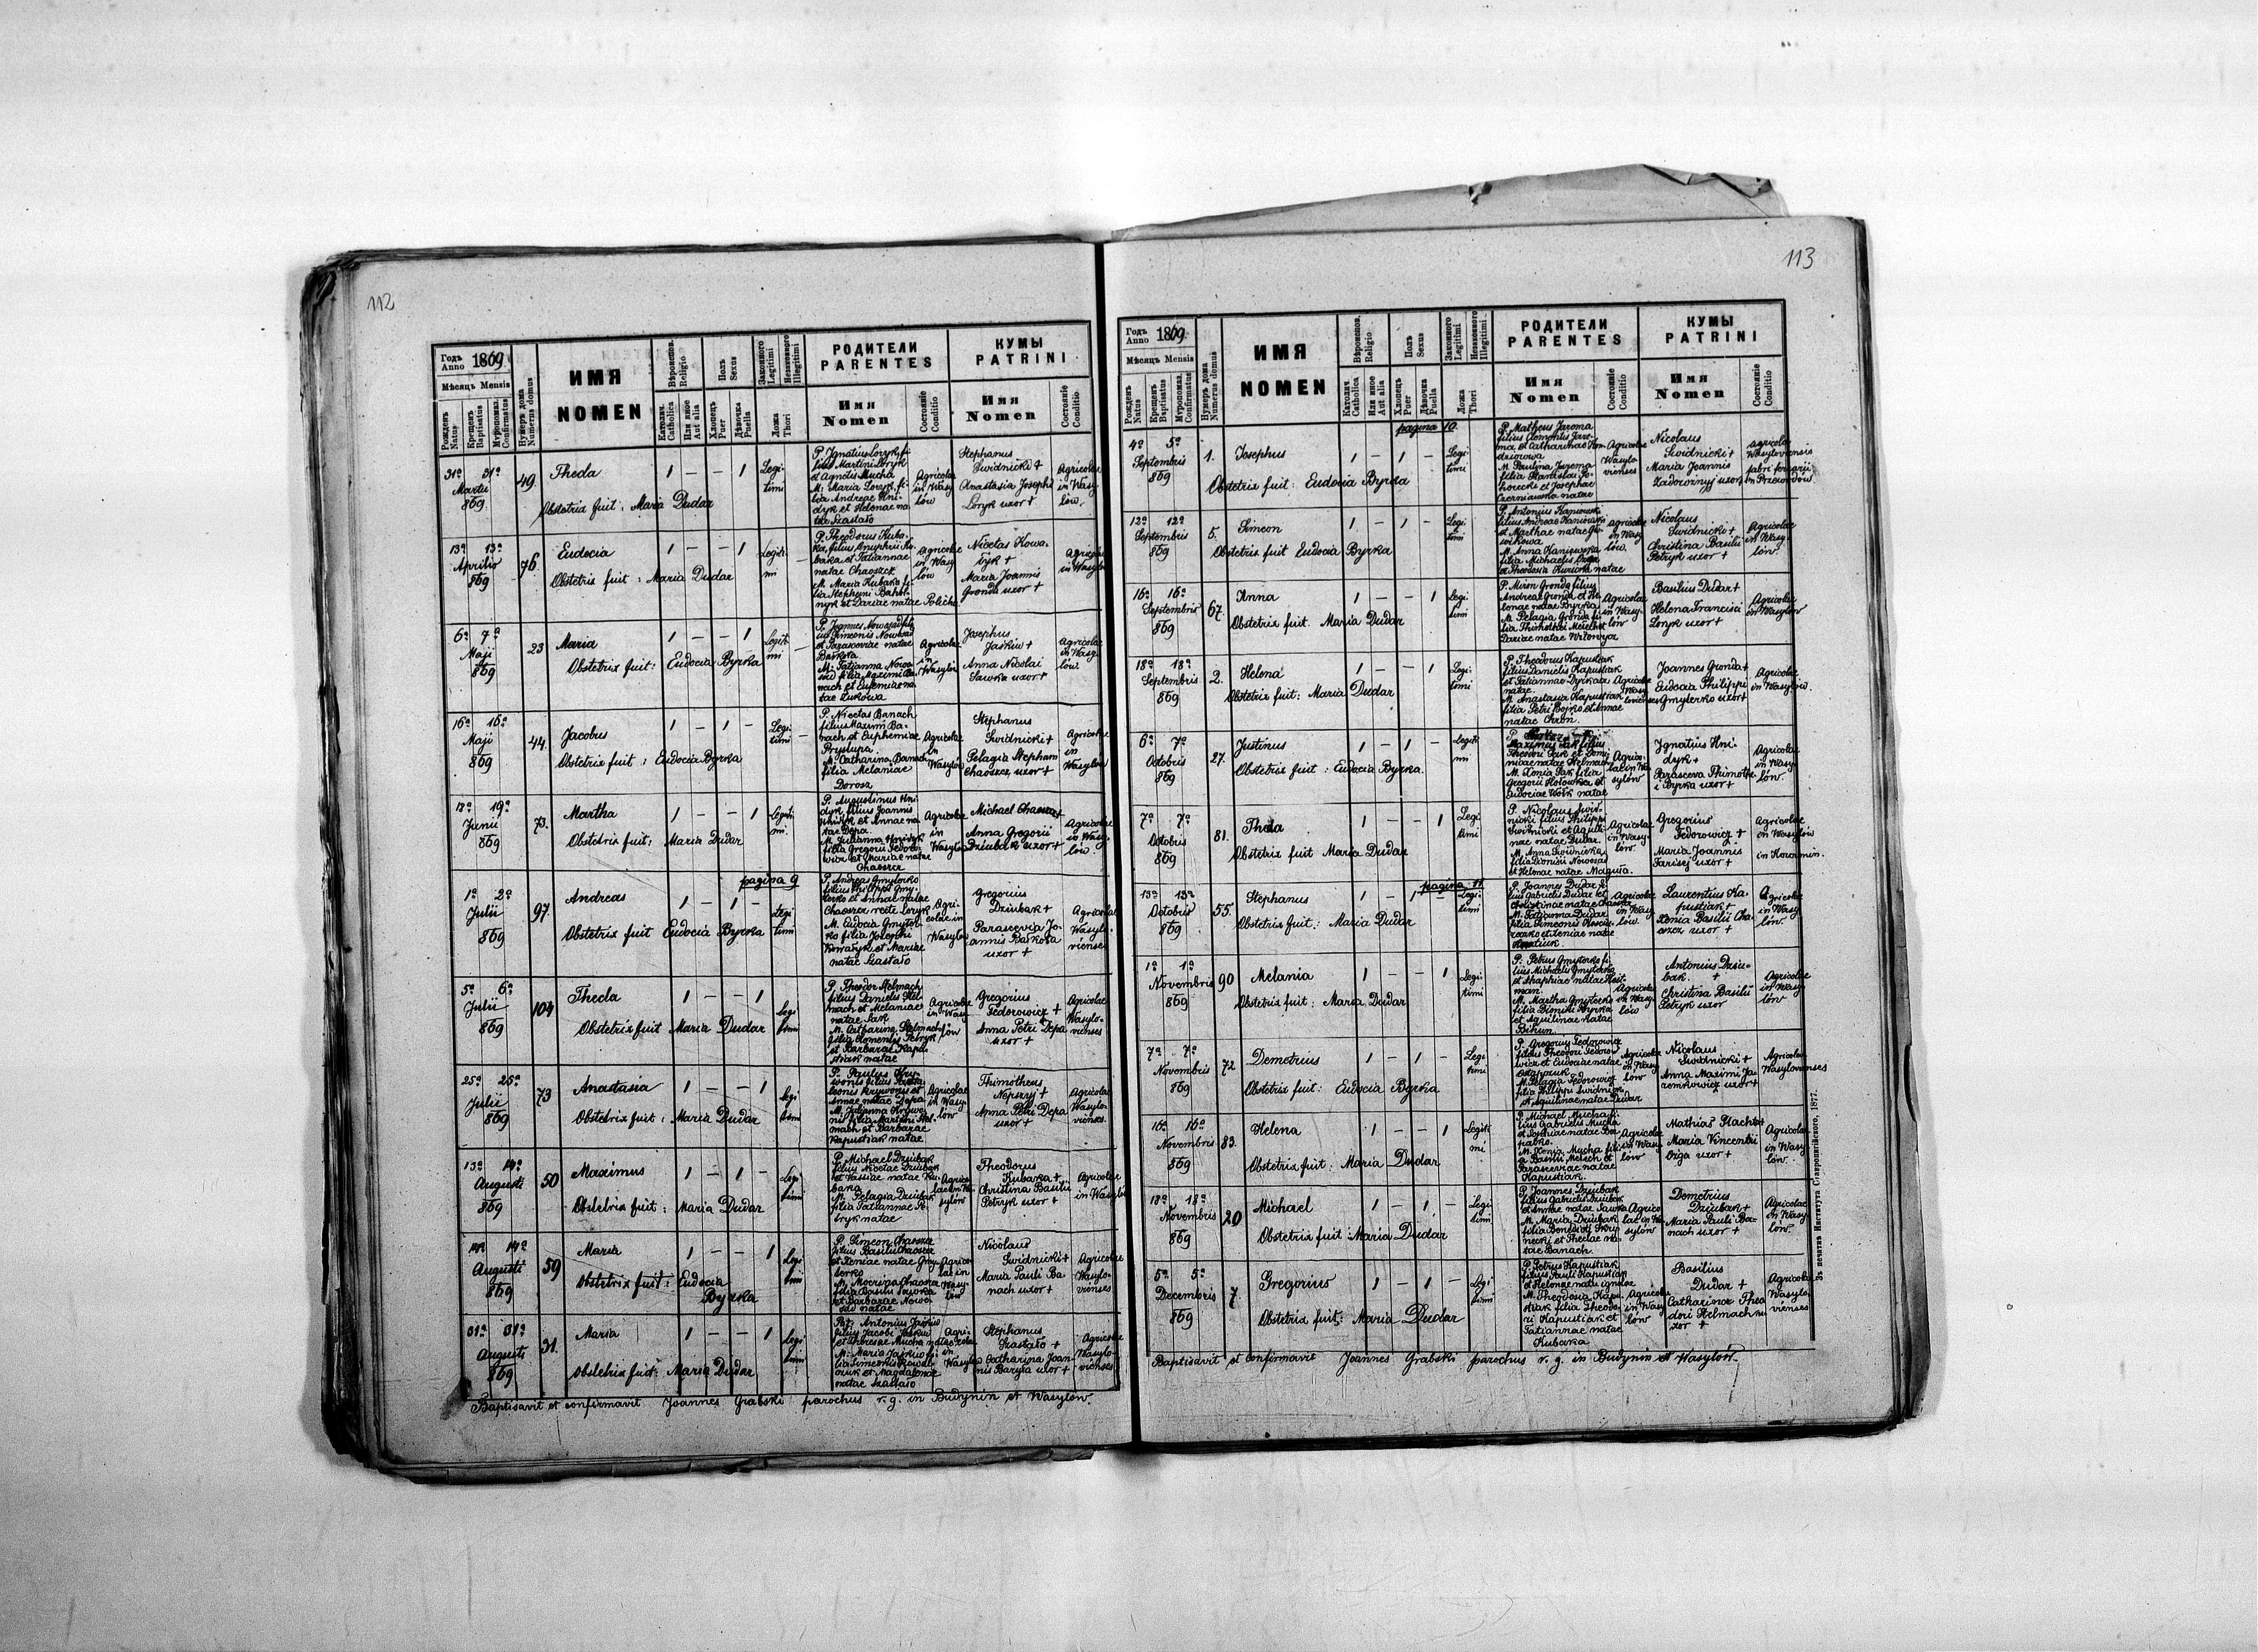 112
Годъ Anno 1869.
Мѣсяцъ Mensis
Рожденъ Natus
Крещенъ Baptisatus
Муропомаз. Confirmatus
Нумеръ дома Numerus domus
ИМЯ
NOMEN
Вѣроисповѣд. Religio
Католич. Catholica
Или иное Aut alia
Полъ Sexus
Хлопецъ Puer
Дѣвочка Puella
Законного Legitimi
Незаконного Illegitimi
Ложа Thori
РОДИТЕЛИ
PARENTES
Имя
Nomen
Состояніе Conditio
КУМЫ
PATRINI
Имя
Nomen
Состояніе Conditio
31ª 31ª Martii 869
49.
Theda
1 — — 1
Legitimi
Obstetrix fuit: Maria Dudar
P. Ignatius Loryk, fi-
lius Martini Loryk
et Agnetis Mucha
M: Maria Loryk, fi-
lia Andreae Hni-
dyk et Helenae na-
tae Szastało
Agricolae in Wasylów
Stephanus
Swidnicki +
Anastasia Josephi
Loryk uxor +
Agricolae in Wasylów.
13ª 13ª Aprilis 869
76.
Eudocia
1 — — 1
Legitimi
Obstetrix fuit: Maria Dudar
P. Theodorus Kuba-
ka, filius Onuphrii Ku-
baka et Tatiannae
natae Chaoszcz
M. Maria Kubaka fi-
lia Stephani
et Dariae natae
Agricolae in Wasylów
Nicetas Kowa-
byk +
Maria Joannis
Gronda uxor +
Agricolae in Wasylów
6ª 7ª Maji 869
23
Maria
1 — — 1
Legitimi
Obstetrix fuit: Eudocia Byrka
P. Joannes Nowosad fili-
us Simeonis Nowosad
et Parasceviae natae
M. Tatianna Nowo-
sad filia Maximi Ba-
nach et Eufemiae na-
tae
Agricolae in Wasylów
Josephus
Jaśkiw +
Anna Nicolai
Sawka uxor +
Agricolae in Wasylów.
16ª 16ª Maji 869
44.
Jacobus
1 — 1 —
Legitimi
Obstetrix fuit: Eudocia Byrka
P. Nicetas Banach
filius Maximi Ba-
nach et Euphemiae
Prystupa.
M. Catharina Banach
filia Melaniae
Dorosz
Agricolae in Wasylów
Stephanus
Swidnicki +
Pelagia Stephani
Chaoszcz uxor +
Agricolae in Wasylów
19ª Junii 869
73.
Martha
1 — — 1
Legitimi.
Obstetrix fuit: Maria Dudar
P. Augustinus Hni-
dyk, filius Joannis
Hnidyk et Annae na-
tae Depa
M. Julianna Hnidyk
filia Gregorii Fedoro-
wicz et Mariae natae
Chaoszcz
Agricolae in Wasylów
Michael Chaoszcz +
Anna Gregorii
Dziubak uxor +
Agricolae in Wasylów.
pagina 9
1ª 2ª Julii 869
97.
Andreas
1 — 1 —
Legitimi
Obstetrix fuit Eudocia Byrka
P. Andreas Gmyterko
filius Philippi Gmy-
terko et Annae natae
Chaoszcz recte Loryk
M. Eudocia Gmyter-
ko filia Josephi
et Mariae
natae Szastało
Agricolae in Wasylów
Gregorius
Dziubak +
Parascevia Jo-
annis Baśkota
uxor +
Agricolae Wasylovienses
5ª 6ª Julii 869
104
Thecla
1 — — 1
Legitimi
Obstetrix fuit Maria Dudar
P. Theodor Helmach
filius Danielis Hel-
mach et Melaniae
natae Jak
M. Catharina Helmach
filia Clementis Petryk
et Barbarae Kapu-
stiak natae
Agricolae in Wasylów
Gregorius
Fedorowicz +
Anna Petri Depa
uxor +
Agricolae Wasylovienses
25ª 25ª Julii 869
73
Anastasia
1 — — 1
Legitimi
Obstetrix fuit: Maria Dudar
P. Paulus
filius
et
Annae natae Depa
M. Julianna
filia Hel-
mach et Barbarae
Kapustiak natae
Agricolae in Wasylów
Thimotheus
+
Anna Petri Depa
uxor +
Agricolae Wasylovienses.
13ª 14ª Augusti 869
50
Maximus
1 — 1 —
Legitimi
Obstetrix fuit: Maria Dudar
P. Michael Dziubak
filius Nicetae Dziubak
et Vassiae natae Ku-
baka
M. Pelagia Dziubak
filia Tatiannae Pe-
tryk natae
Agricolae in Wasylów
Theodorus
Kubarka +
Christina Basilii
Petryk uxor +
Agricolae in Wasylów
14ª 14ª Augusti 869
59
Maria
1 — — 1
Legitimi
Obstetrix fuit: Eudocia
Byrka
P. Simeon Chaoszcz
filius Basilii Chaoszcz
et Xeniae natae Gmy-
terko
M. Chaoszcz
filia Basilii Sawka
et Barbarae Nowo-
sad natae
Agricolae in Wasylów
Nicolaus
Swidnicki +
Maria Pauli Ba-
nach uxor +
Agricolae Wasylovienses
31ª 31ª Augusti 869
31.
Maria
1 — — 1
Legitimi
Obstetrix fuit: Maria Dudar
Antonius Jaśkiw
filius Jacobi Jaśkiw
et Theresae Mucha natae
M. Maria Jaśkiw fi-
lia Simeonis Kowal-
czuk et Magdalenae
natae Szastało
Agricolae in Wasylów
Stephanus
Szastało +
Catharina Joan-
nis Baryła uxor +
Agricolae Wasylovienses
Baptisavit et confirmavit Joannes Grabski parochus r. g. in Budynin et Wasylów.
113
Годъ Anno 1869
Мѣсяцъ Mensis
Рожденъ Natus
Крещенъ Baptisatus
Муропомаз. Confirmatus
Нумеръ дома Numerus domus
ИМЯ
NOMEN
Вѣроисповѣд. Religio
Католич. Catholica
Или иное Aut alia
Полъ Sexus
Хлопецъ Puer
Дѣвочка Puella
Законного Legitimi
Незаконного Illegitimi
Ложа Thori
РОДИТЕЛИ
PARENTES
Имя
Nomen
Состояніе Conditio
КУМЫ
PATRINI
Имя
Nomen
Состояніе Conditio
pagina 10.
4ª 5ª Septembris 869
1.
Josephus
1 — 1 —
Legitimi
Obstetrix fuit: Eudocia Byrka
P. Matheus Jaroma
filius Clementis Jaro-
ma et Catharinae
M. Paulina Jaroma
filia Stanislai
et Josephae
Czerniawska natae
Agricolae Wasylovienses
Nicolaus
Swidnicki +
Maria Joannis
Zadorożnyj uxor
agricola Wasyloviensis
fabri ferrarii in Przewodów.
12ª 12ª Septembris 869
5.
Simeon
1 — 1 —
Legitimi
Obstetrix fuit Eudocia Byrka
P. Antonius Kaniowski
filius Andreae Kaniowski
et Marthae natae
M. Anna Kaniowska
filia Michaelis
et Theodosia natae
agricolae in Wasylów.
Nicolaus
Swidnicki +
Christina Basilii
Petryk uxor +
Agricolae in Wasylów.
16ª 16ª Septembris 869
67.
Anna
1 — — 1
Legitimi
Obstetrix fuit Maria Dudar
P. Miron Gronda filius
Andreae Gronda et He-
lenae natae Byrka
M. Pelagia Gronda fi-
lia Thimothei
Dariae natae
Agricolae in Wasylów
Basilius Dudar +
Helena Francisci
Loryk uxor +
Agricolae in Wasylów
18ª 18ª Septembris 869
2.
Helena
1 — — 1
Legitimi
Obstetrix fuit: Maria Dudar
P. Theodorus Kapustiak
filius Danielis Kapustiak
et Tatiannae
natae
M. Anastasia Kapustiak
filia Petri Bojko et Annae
natae Chron.
Agricolae Wasylovienses
Joannes Gronda +
Eudocia Philippi
Gmyterko uxor +
Agricolae in Wasylów.
6ª 7ª Octobris 869
27.
Justinus
1 — 1 —
Legitimi
Obstetrix fuit: Eudocia Byrka.
P.
Maximus Jak filius
Theodori Jak et
natae Helmach
M. Xenia Jak filia
Gregorii Hołowka et
Eudociae Wołk natae
Agricolae in Wasylów
Ignatius Hni-
dyk +
Parasceva Thimothe-
i Byrka uxor +
Agricolae in Wasylów.
7ª 7ª Octobris 869
81.
Thecla
1 — — 1
Legitimi
Obstetrix fuit Maria Dudar
P. Nicolaus Swid-
nicki filius Philippi
Swidnicki et Aquili-
nae natae Dudar.
M. Anna Swidnicka
filia Dionisii Nowosad
et Helenae natae
Agricolae in Wasylów.
Gregorius
Fedorowicz +
Maria Joannis
uxor +
Agricolae in Wasylów
13ª 13ª Octobris 869
55.
Stephanus
1 — 1 —
pagina 11
Legitimi
Obstetrix fuit: Maria Dudar
P. Joannes Dudar fi-
lius Gabrielis Dudar et
Christinae natae Chaoszcz
M. Tatianna Dudar
filia Simeonis
et Xeniae natae
Agricolae in Wasylów.
Laurentius Ka-
pustiak +
Xenia Basilii Cha-
oszcz uxor +
Agricolae in Wasylów.
1ª 1ª Novembris 869
90
Melania
1 — — 1
Legitimi
Obstetrix fuit: Maria Dudar
P. Petrus Gmyterko fi-
lius Michaelis Gmyterko
et natae
M. Martha Gmyterko
filia Dimitri Byrka
et Aquilinae natae
Bihun.
Agricolae in Wasylów
Antonius Dziu-
bak. +
Christina Basilii
Petryk uxor
Agricolae in Wasylów
7ª 7ª Novembris 869
72
Demetrius
1 — 1 —
Legitimi
Obstetrix fuit: Eudocia Byrka
P. Gregorius Fedorowicz
filius Theodori Fedoro-
wicz et Eudociae natae
M. Pelagia Fedorowicz
filia Philippi Swidnicki
et Aquilinae natae Dudar
Agricolae in Wasylów
Nicolaus
Swidnicki +
Anna Maximi Ja-
remkowicz uxor +
Agricolae Wasylovienses
16ª 16ª Novembris 869
83.
Helena
1 — — 1
Legitimi
Obstetrix fuit: Maria Dudar
P. Michael Mucha fi-
lius Gabrielis Mucha
et Sophiae natae
M. Xenia Mucha fili-
a Basilii et
Parasceviae natae
Kapustiak.
Agricolae in Wasylów
Mathias +
Maria Vincentii
uxor +
Agricolae in Wasylów.
18ª 18ª Novembris 869
20
Michael
1 — 1 —
Legitimi
Obstetrix fuit: Maria Dudar
P. Joannes Dziubak
filius Gabrielis Dziubak
et Annae natae Sawka
M. Maria Dziubak
filia Benedicti
et Theclae na-
tae Banach.
Agricolae in Wasylów
Demetrius
Dziubak +
Maria Pauli Ba-
nach uxor +
Agricolae in Wasylów.
5ª 5ª Decembris 869
7
Gregorius
1 — 1 —
Legitimi
Obstetrix fuit: Maria Dudar
P. Petrus Kapustiak
filius Pauli Kapustiak
et Helenae natu ignotae
M. Theodosia Kapu-
stiak filia Theodo-
ri Kapustiak et
Tatiannae natae
Kubarka
Agricolae in Wasylów
Basilius
Dudar +
Catharina Theo-
dori Helmach u-
xor +
Agricolae Wasylovienses
Baptisavit et confirmavit Joannes Grabski parochus r. g. in Budynin et Wasylów.
Зъ печатнѣ Института Ставропигійского, 1877.